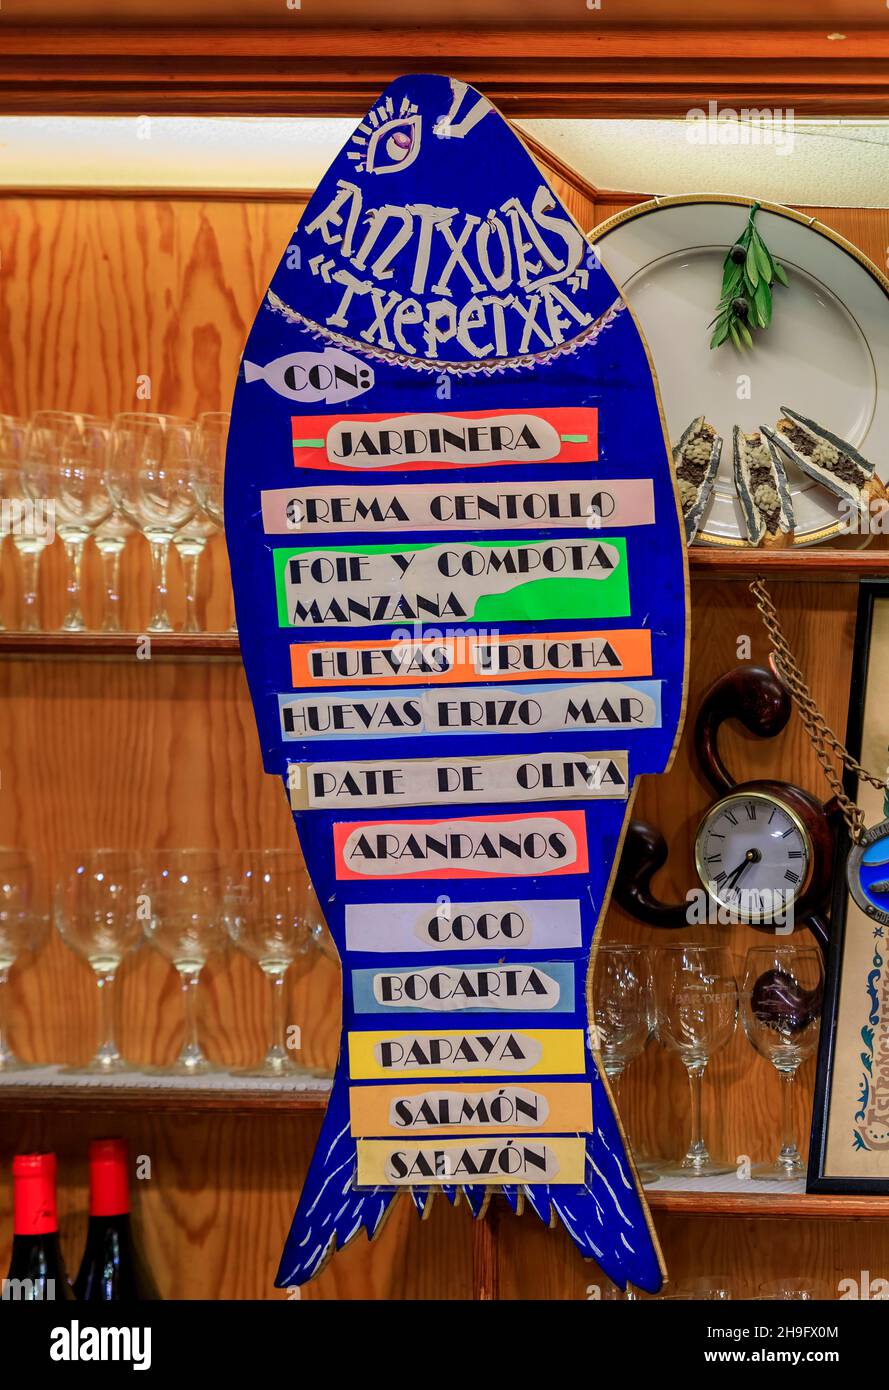 ANTXÓAS
"TXEPETXA"
CON:
JARDINERA
CREMA CENTOLLO
FOIE Y COMPOTA
MANZANA
HUEVAS TRUCHA
HUEVAS ERIZO MAR
PATE DE OLIVA
ARANDANOS
COCO
BOCARTA
PAPAYA
SALMÓN
SALAZÓN
BAR TXEPETXA
alamy
Image ID: 2H9FX0M
www.alamy.com